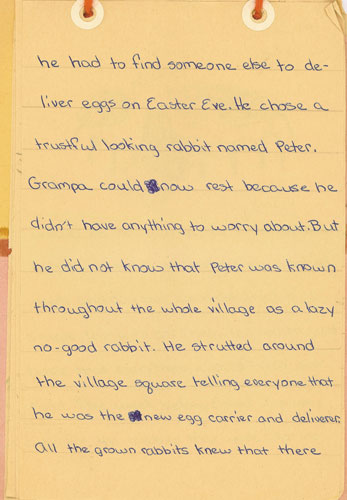 he had to find someone else to de-
liver eggs on Easter Eve. He chose a
trustful looking rabbit named Peter.
Grampa could now rest because he
didn't have anything to worry about. But
he did not know that Peter was known
throughout the whole village as a lazy
no-good rabbit. He strutted around
the village square telling everyone that
he was the new egg carrier and deliverer.
All the grown rabbits knew that there